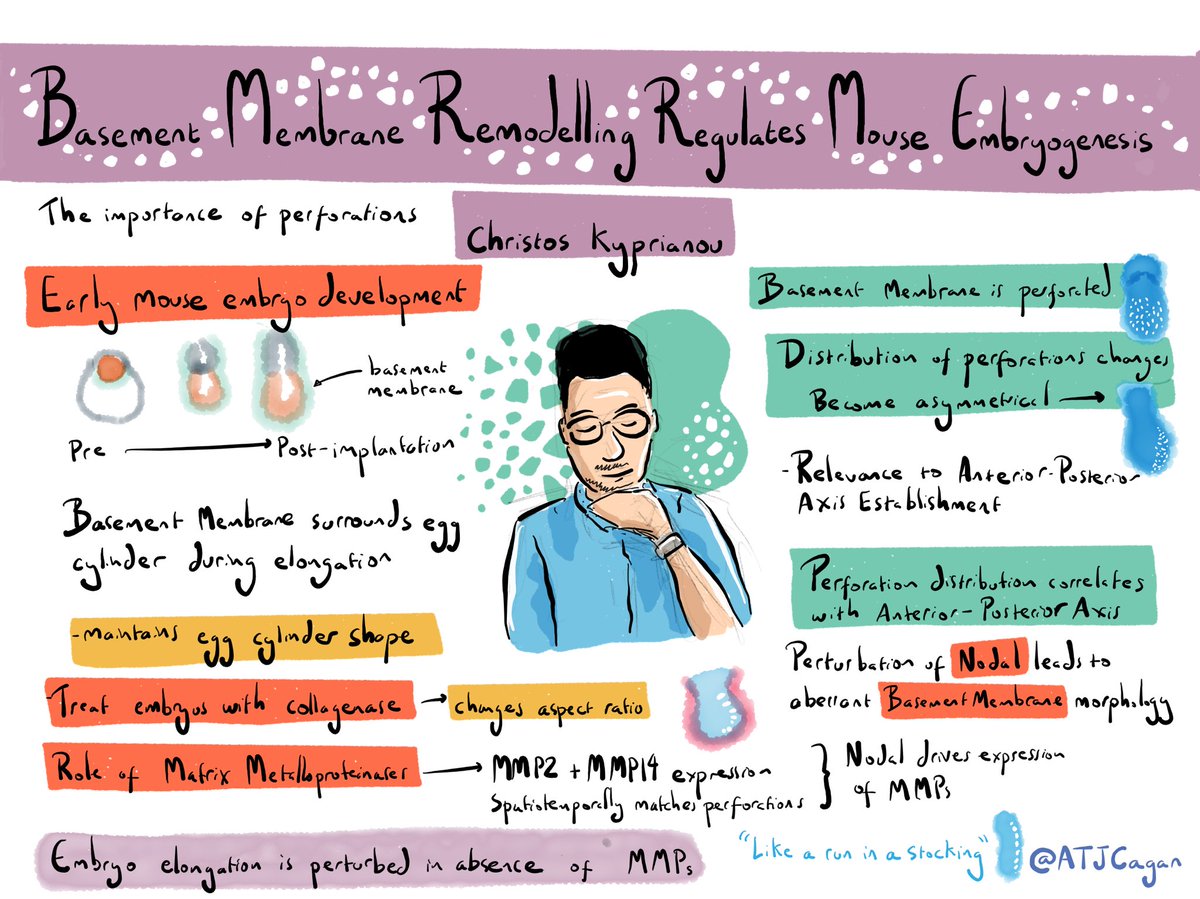 Basement Membrane Remodelling Regulates Mouse Embryogenesis
The importance of perforations
Christos Kyprianou
Early mouse embryo development
basement
membrane
Pre
Post-implantation
Basement Membrane surrounds egg
cylinder during elongation
-maintains egg cylinder shape
-Treat embryos with collagenase
changes aspect ratio
Role of Matrix Metalloproteinases
MMP2 + MMP14 expression
Spatiotemporally matches perforations
Nodal drives expression
of MMPs
Embryo elongation is perturbed in absence of MMPs
Basement Membrane is perforated
Distribution of perforations changes
Become asymmetrical
-Relevance to Anterior-Posterior
Axis Establishment
Perforation distribution correlates
with Anterior-Posterior Axis
Perturbation of Nodal leads to
aberrant Basement Membrane morphology
"Like a run in a stocking"
@ATJCagan